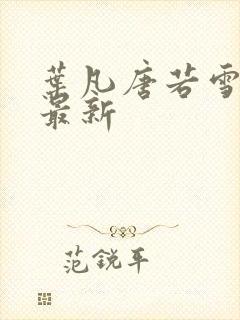 葉凡唐若雪
最新
范銳平